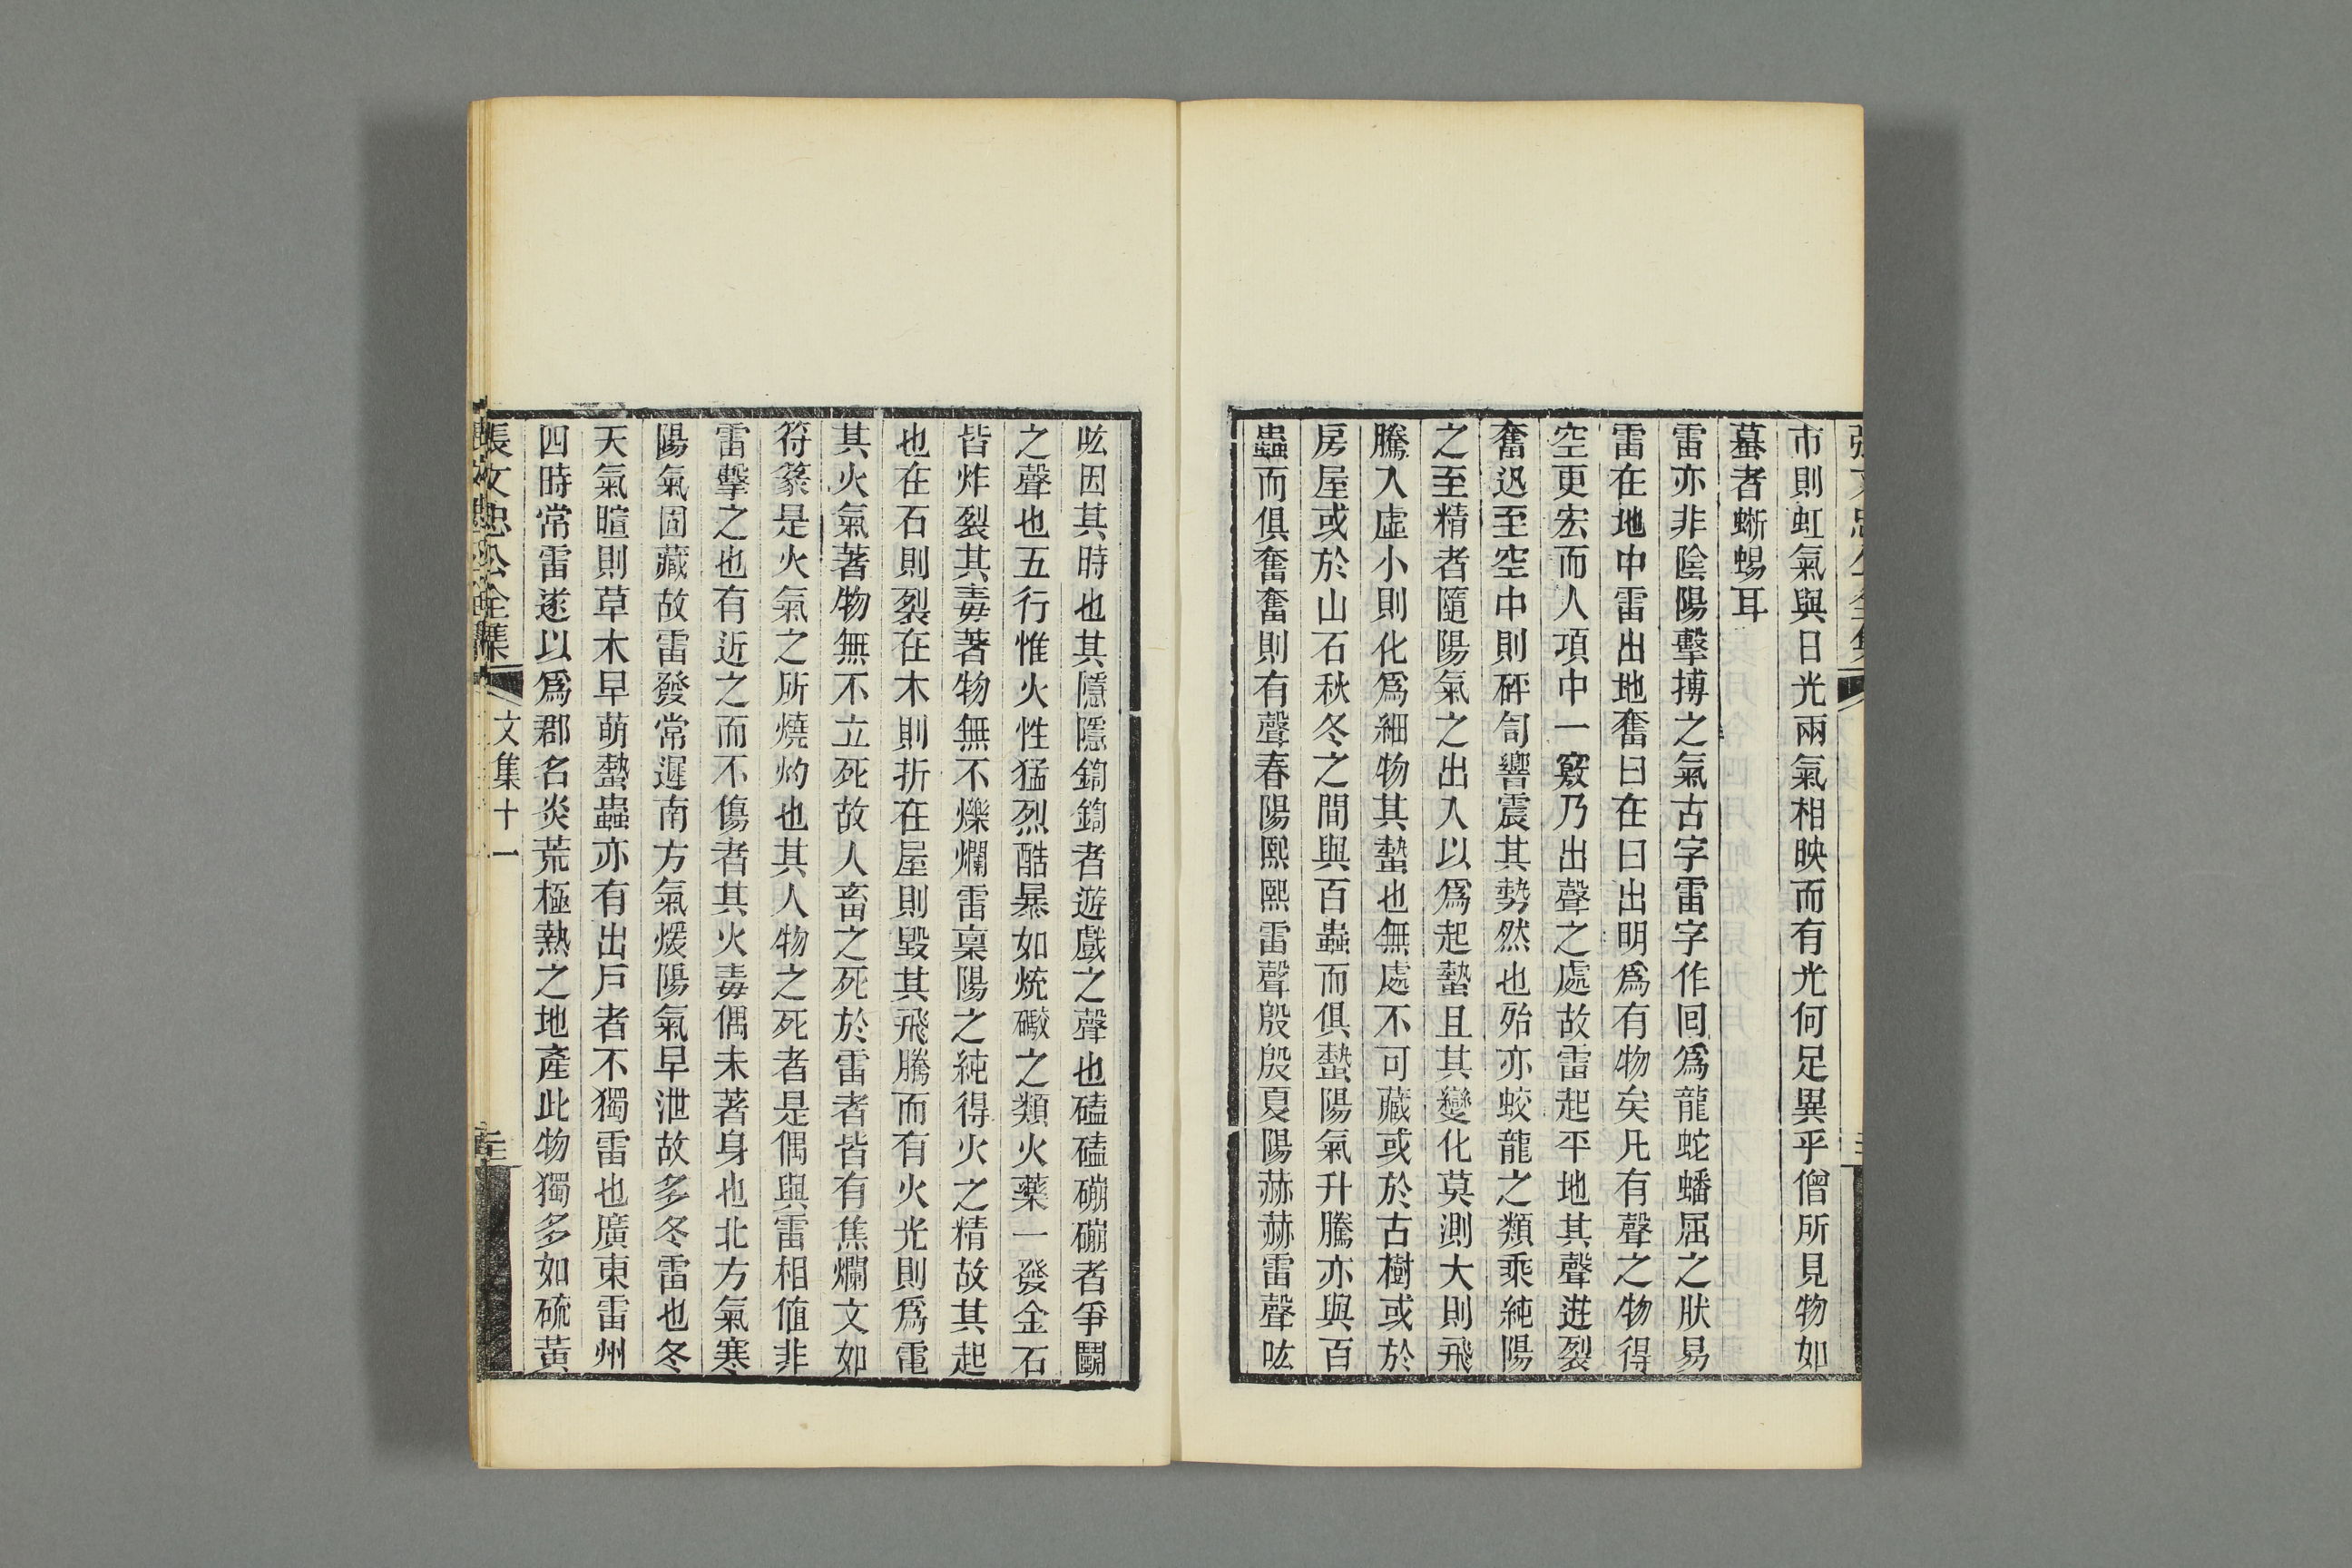 市則虹氣與日光兩氣相映而有光何足異乎僧所見物如
蟇者蜥蜴耳
雷亦非陰陽擊搏之氣古字雷字作回爲龍蛇蟠屈之狀易
雷在地中雷出地奮曰在曰出明爲有物矣凡有聲之物得
空更宏而人項中一竅乃出聲之處故雷起平地其聲迸裂
奮迅至空中則砰訇響震其勢然也殆亦蛟龍之類乘純陽
之至精者隨陽氣之出入以爲起蟄且其變化莫測大則飛
騰入虛小則化爲細物其蟄也無處不可藏或於古樹或於
房屋或於山石秋冬之間與百蟲而俱蟄陽氣升騰亦與百
蟲而俱奮奮則有聲春陽熙熙雷聲殷殷夏陽赫赫雷聲呟
呟因其時也其隱隱鍧鍧者遊戲之聲也磕磕磞磞者爭鬭
之聲也五行惟火性猛烈酷暴如炕礮之類火藥一發金石
皆炸裂其毒著物無不爍爛雷稟陽之純得火之精故其起
也在石則裂在木則折在屋則毀其飛騰而有火光則爲電
其火氣著物無不立死故人畜之死於雷者皆有焦爛文如
符篆是火氣之所燒灼也其人物之死者是偶與雷相値非
雷擊之也有近之而不傷者其火毒偶未著身也北方氣寒
陽氣固藏故雷發常遲南方氣煖陽氣早泄故多冬雷也冬
天氣暄則草木早萌蟄蟲亦有出戶者不獨雷也廣東雷州
四時常雷遂以爲郡名炎荒極熱之地產此物獨多如硫黃
張文忠公全集 文集十一